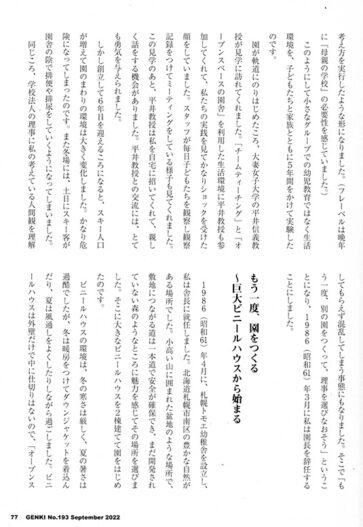 考え方を実行したような形になりました。（フレーベルは晩年
に「母親の学校」の必要性を感じていました）
このようにして小さなグループでの幼児教育ではなく生活
環境を、子どもたちと家族とともに5年間をかけて実験した
のです。
園が軌道にのりはじめたころ、大妻女子大学の平井信義教
授が見学に訪れてくれました。「チームティーチング」と「オ
ープンスペースの園舎」を利用した生活環境に平井教授も参
加してくれて、私たちの実践を見てかなりショックを受けた
顔をしていました。スタッフが毎日子どもたちを観察し観察
記録をつけてミーティングをしている様子も見てくれました。
この見学のあと、平井教授は私を自宅に招いてくれて、親し
く話をする機会がありました。平井教授との交流には、とて
も勇気を与えられました。
しかし創立して6年目を迎えるころになると、スキー人口
が増えて園のまわりの環境は大きく変化しました。かなり危
険になってしまったのです。また冬場には、土日にスキー客が
園舎の陰で排便や排尿をしていくようになってしまいました。
同じころ、学校法人の理事に私の考えている人間観を理解
してもらえず混乱してしまう事態にもなりました。そこで「も
う一度、別の園をつくって、理事を選びなおそう」というこ
とになり、1986（昭和61）年3月に私は園長を辞任する
ことにしました。
もう一度、園をつくる
〜巨大ビニールハウスから始まる
1986（昭和61）年4月に、札幌トモエ幼稚舎を設立し、
私は舎長に就任しました。北海道札幌市南区の豊かな自然が
ある場所でした。小高い山に囲まれた盆地のような場所で、
敷地につながる道は一本道で安全が確保でき、まだ開発され
ていない森のようなところに魅力を感じてその場所を選びま
した。そこに大きなビニールハウスを2棟建てて園をはじめ
たのです。
ビニールハウスの環境は、冬の寒さは厳しく、夏の暑さは
過酷でしたが、冬は暖房をつけてダウンジャケットを着込ん
だり、夏は風通しをよくしたりしながら過ごしました。ビニ
ールハウスは外壁だけで中に仕切りはないので、「オープンス
77 GENKI No.193 September 2022